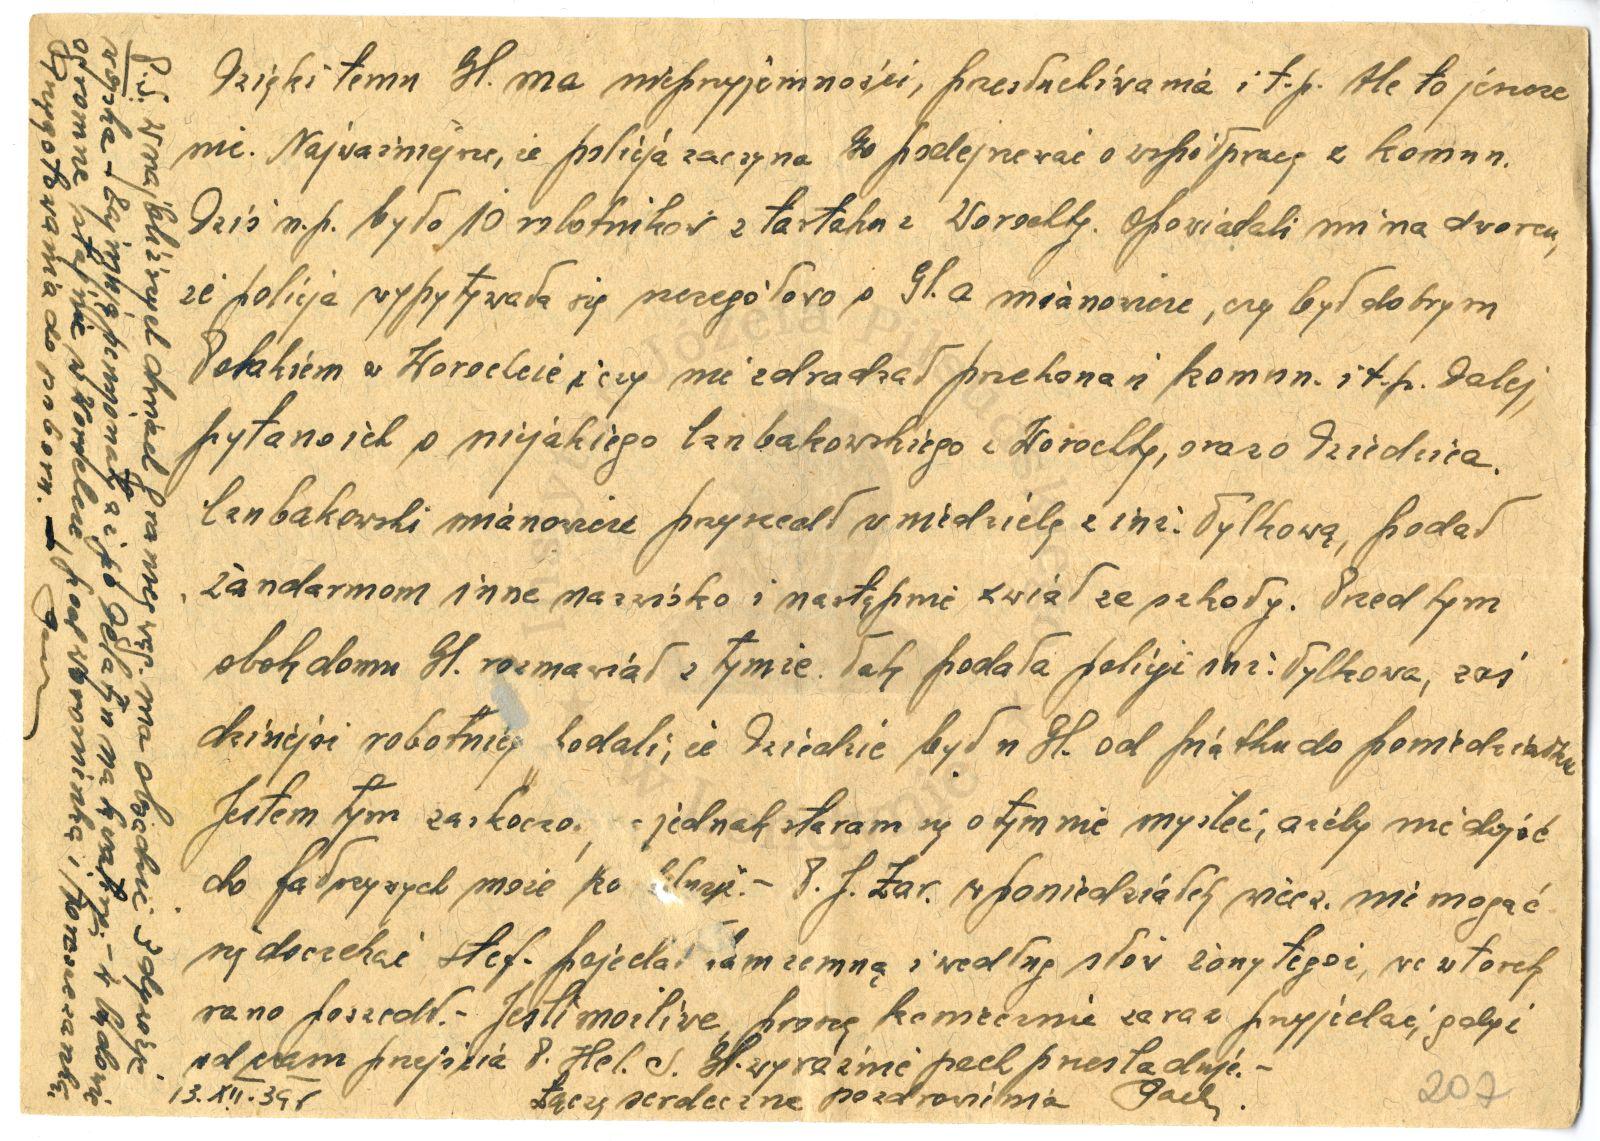 Dzięki temu Gl. ma nieprzyjemności, przesłuchiwania i t.p. Ale to jeszcze
nic. Najważniejsze, że policja zaczyna Go podejrzewać o współpracę z komun.
Dziś n.p. było 10 robotników z tartaku z Worochty. Opowiadali mi na dworcu,
że policja wypytywała się szczegółowo o Gl. a mianowicie, czy był dobrym
Polakiem w Worochcie i czy nie zdradzał przekonań komun. i t.p. Dalej,
pytano ich o niejakiego Czubakowskiego z Worochty, oraz o Dziedzica.
Czubakowski mianowicie przyszedł w niedzielę z inż. Dylkową, podał
żandarmom inne nazwisko i następnie zwiał ze szkody. Przed tym
obok domu Gl. rozmawiał z tymże. Tak podała policji inż. Dylkowa, zaś
dzisiejsi robotnicy dodali, że Dziedzic był u Gl. od piątku do poniedziałku
Jestem tym zaskoczo. jednak staram się o tym nie myśleć, ażeby nie dojść
do fałszywych może P. J. Żar. w poniedziałek wiecz. nie mogąc
się doczekać Stef. pojechał sam zemną i według słów żony tegoż, we wtorek
rano poszedł.- Jeśli możliwe, proszę koniecznie zaraz przyjechać, gdyż
od czasu przejścia P. Hel. S. Gl. wyraźnie pech prześladuje.-
13.XII.39 r Łączę serdeczne pozdrowienia
P.S. W najbliższych dniach Graniczn. ma objechać
wojska -
ogromne stajnie w Worochcie, pod Woronienką i
Przygotowania do poboru. -
Józefa Piłsudskiego
w Londynie
207